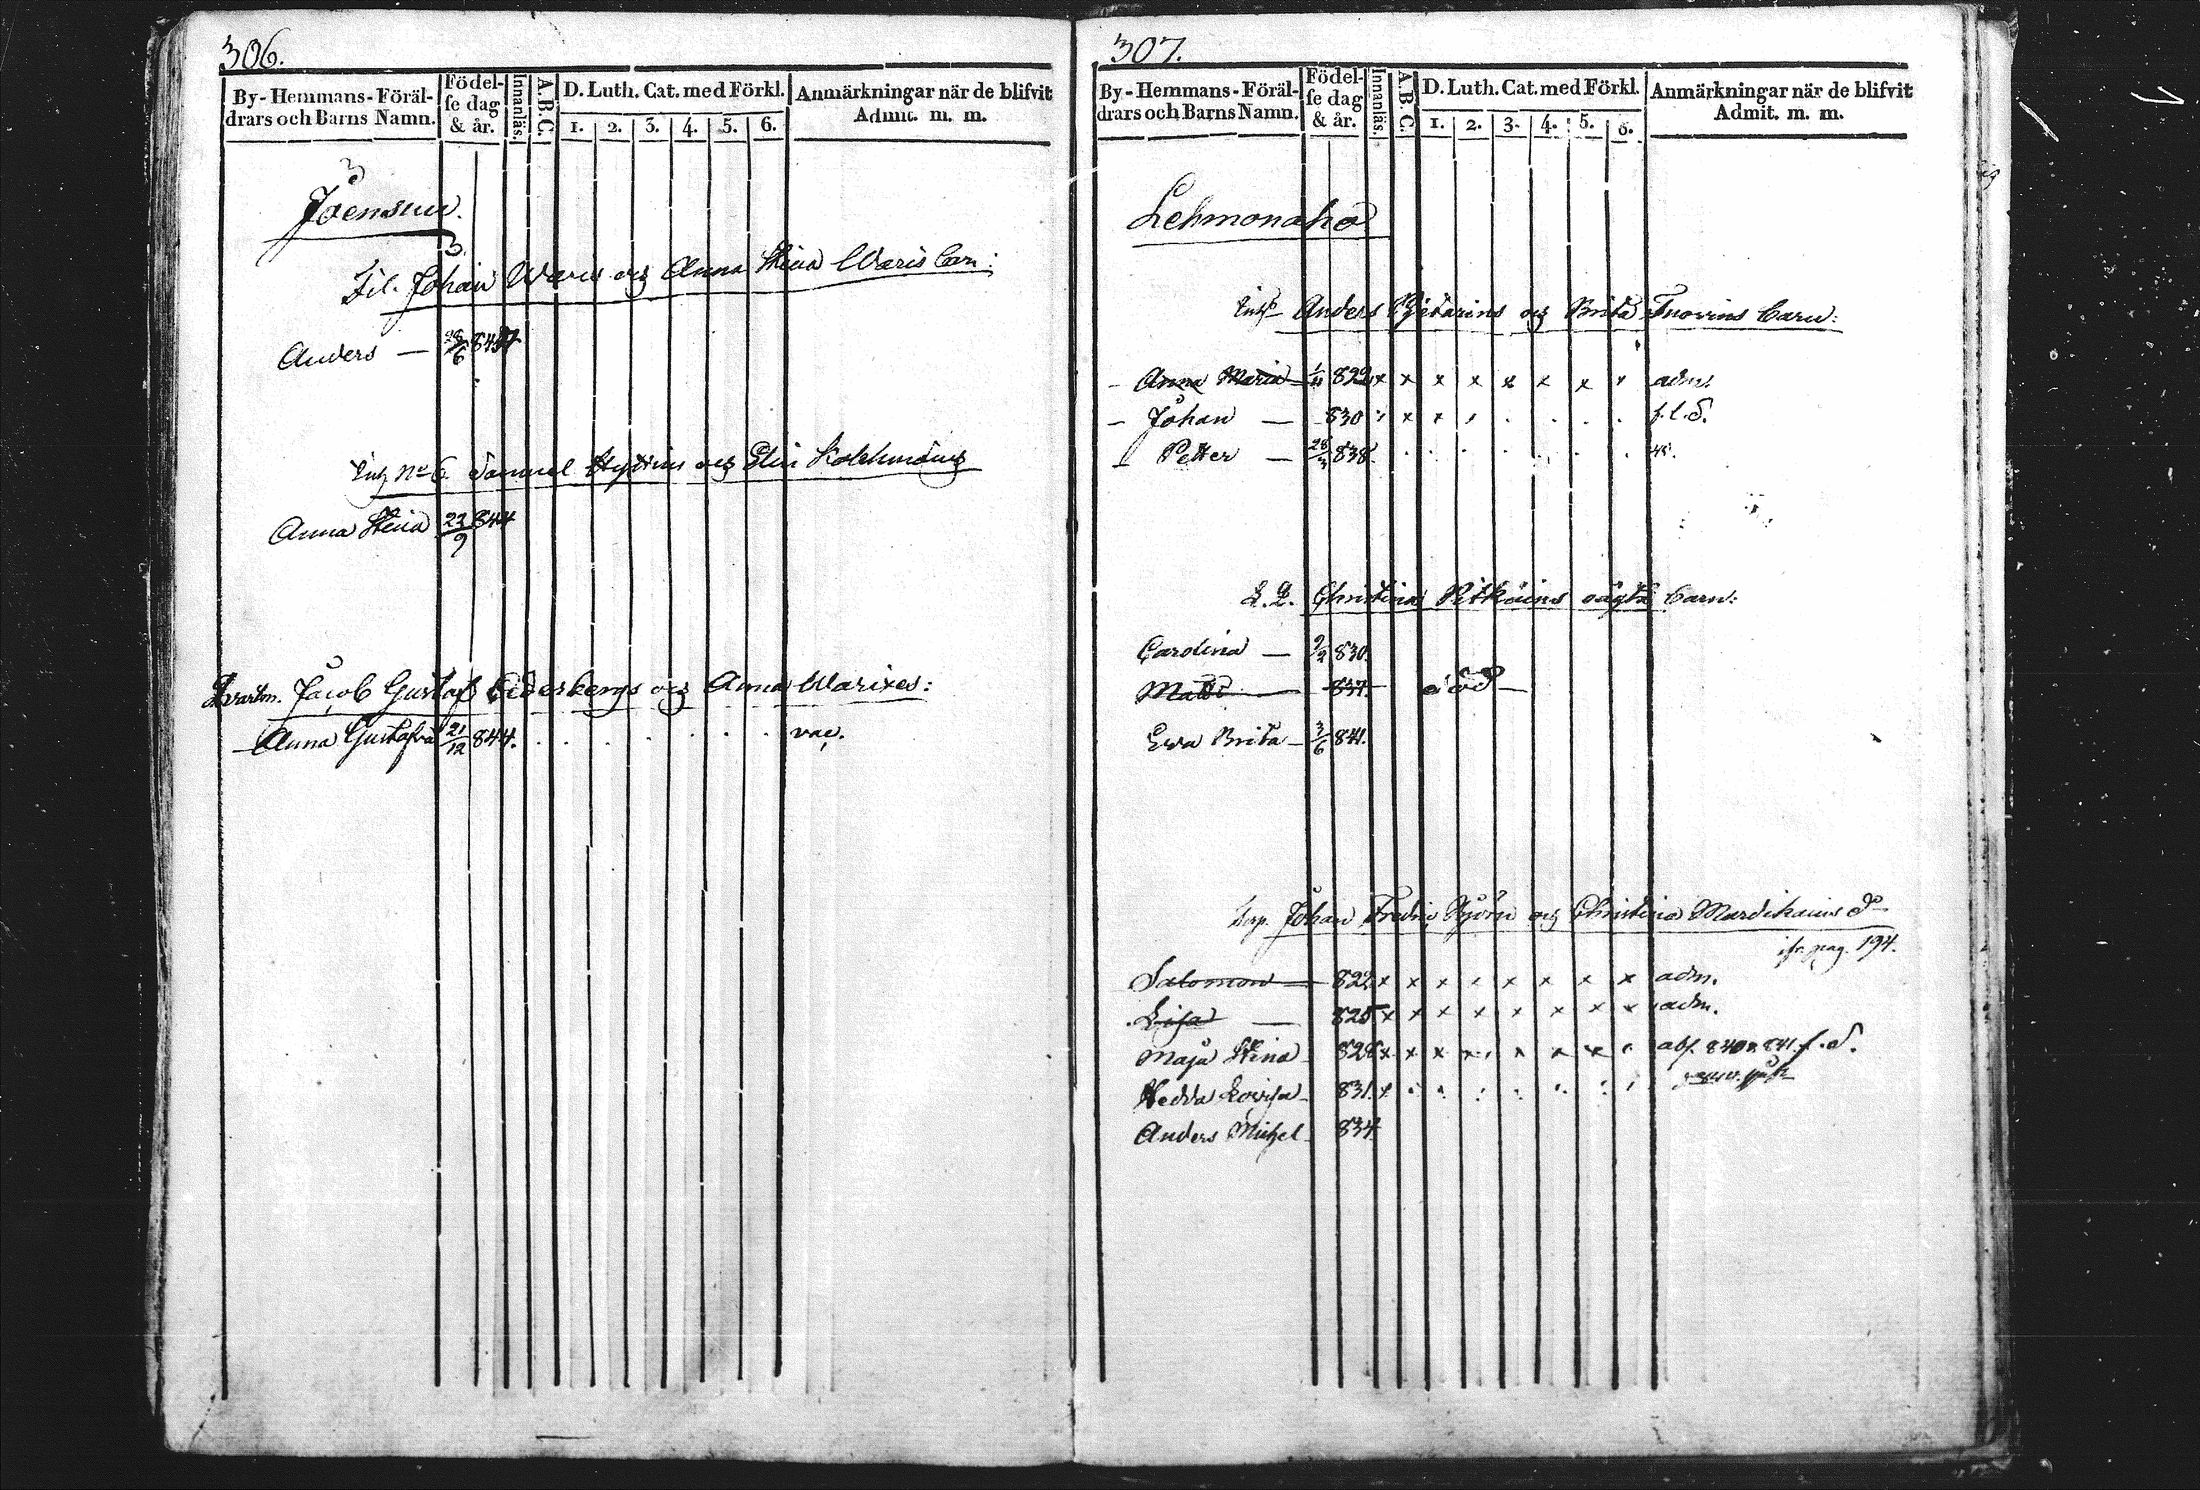 306.
By-Hemmans-Föräl-drars och Barns Namn. Födel-se dag & år. Innanläs. A.B.C. D. Luth. Cat. med Förkl. 1. 2. 3. 4. 5. 6. Anmärkningar när de blifvit Admit. m. m.
3
Joensuu.
3.
Johan Waris og Anna Stina Waris barn:
Anders — 6
No 6. Samuel og
Anna Stina 22/9 844
Jacob Gustaf og Anna Warixes:
Anna Gustafva 21/12 844. . . . . . . . . vac.
307.
By-Hemmans-Föräl-drars och Barns Namn. Födel-se dag & år. Innanläs. A.B.C. D. Luth. Cat. med Förkl. 1. 2. 3. 4. 5. 6. Anmärkningar när de blifvit Admit. m. m.
Lehmonaho
Anders og Brita Tuovins barn:
- Anna Maria 1/11 822 x x x x x x x x adm.
- Johan — 830 x x f.l.d.
Petter — 838
Christina Pitkäins oägta barn:
Carolina — 830.
Matts — 837. död —
Ewa Brita — 3/6 841.
Johan Fredric Björn og Christina
pag. 194.
Salomon 822 x x x x x x x x adm.
Lisa — 825 x x x x x x x x adm.
Maja Stina 828 x x x x x x x abs. 840 841.
Hedda Lovisa 831. x
Anders Michel 834